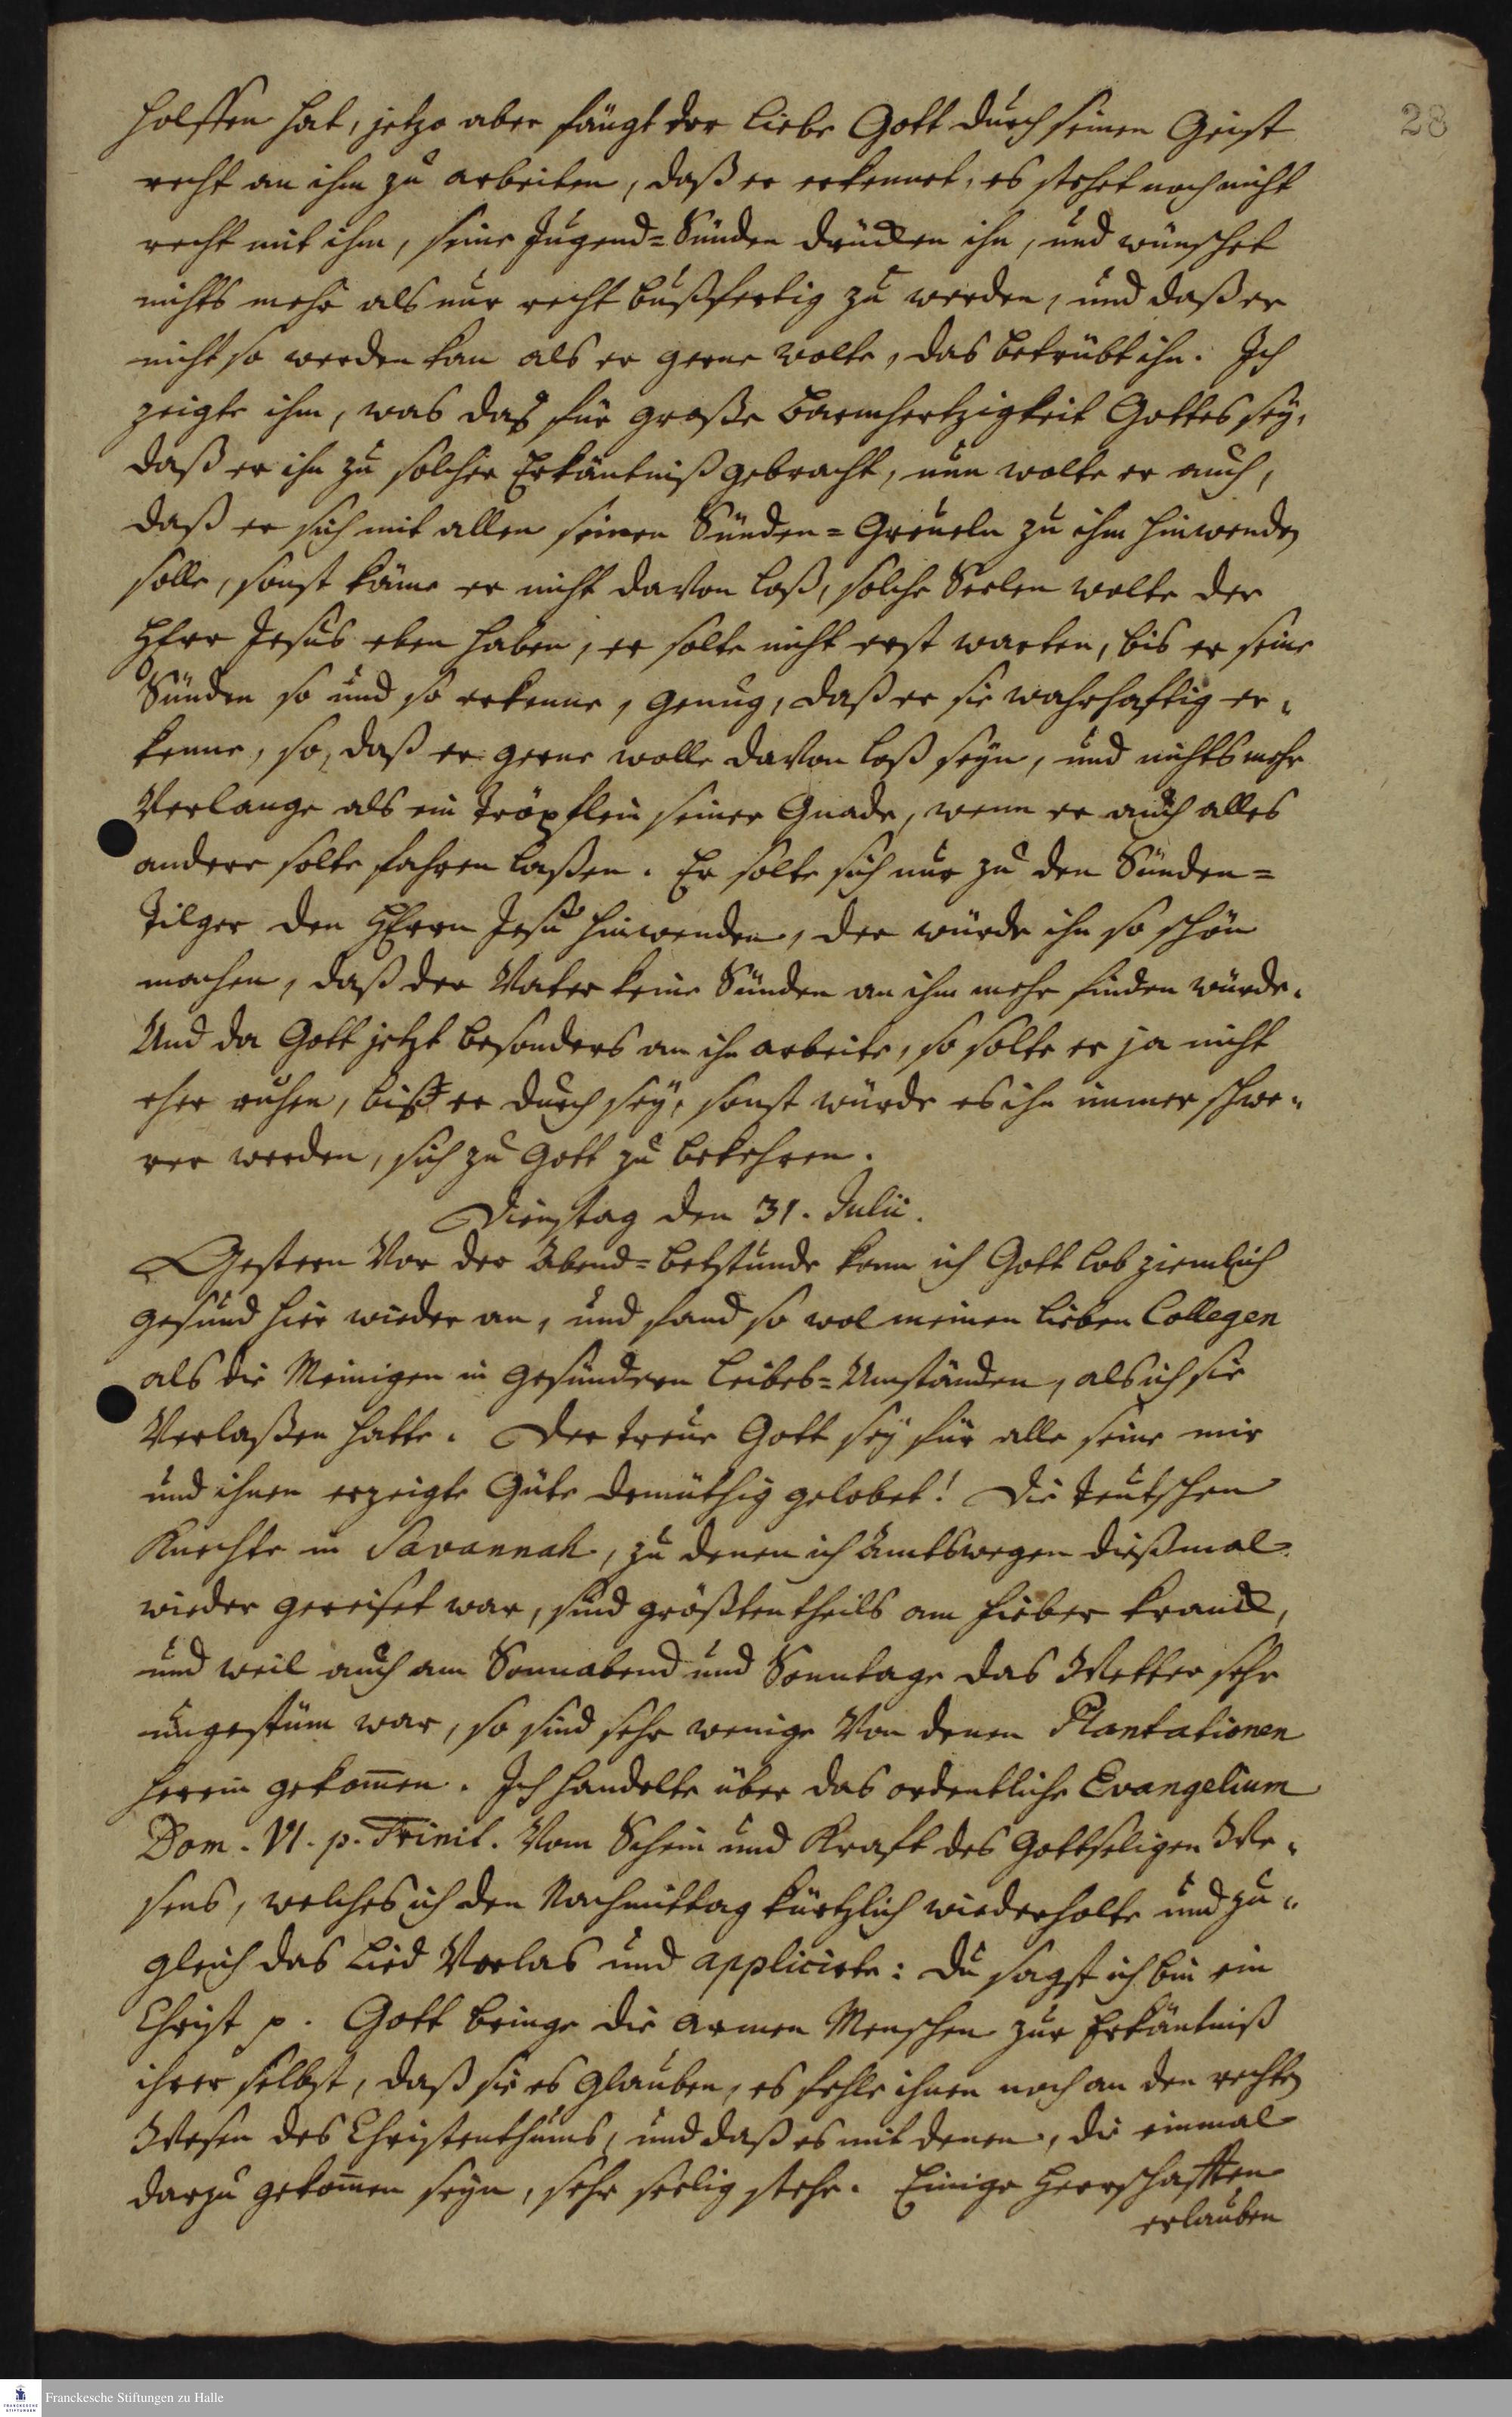 28
holffen hat, jetzo aber fängt der liebe Gott durch seinen Geist
recht an ihm zu arbeiten, daß er erkennet, es stehet noch nicht
recht mit ihm, seine Jugend=Sünden drücken ihn, und wünschet
nichts mehr als nur recht bußfertig zu werden, und daß er
nicht so werden kan als er gerne wolte, das betrübt ihn. Ich
zeigte ihm, was das für große Barmhertzigkeit Gottes sey,
daß er ihn zu solcher Erkäntniß gebracht, nun wolte er auch,
daß er sich mit allen seinen Sünden=Greueln zu ihm hinwenden
solle, sonst käme er nicht davon loß, solche Seelen wolte der
HErr Jesus eben haben, er solte nicht erst warten, bis er seine
Sünden so und so erkenne, genug, daß er sie wahrhafftig er=
kenne, so, daß er gerne wolle davon loß seyn, und nichts mehr
Verlange als ein Tröpflein seiner Gnade, wenn er auch alles
andere solte fahren laßen. Er solte sich nur zu den Sünden=
Tilger den HErrn Jesu hinwenden, der würde ihn so schön
machen, daß der Vater keine Sünden an ihm mehr finden würde.
Und da Gott jetzt besonders an ihn arbeite, so solte er ja nicht
eher ruhen, biß er durch sey, sonst würde es ihn immer schwe=
rer werden, sich zu Gott zu bekehren.
Dienstag den 31. Julii.
Gestern Vor der Abend=betstunde kam ich Gott lob ziemlich
gesund hier wieder an, und fand so wol meinen lieben Collegen
als die Meinigen in gesündern Leibes=Umständen, als ich sie
Verlaßen hatte. Der treue Gott sey für alle seine mir
und ihnen erzeigte Güte demüthig gelobet! Die teutschen
Knechte in Savannah, zu denen ich Amtswegen dießmal
wieder gereiset war, sind größtentheils am Fieber kranck,
und weil auch am Sonnabend und Sonntage das Wetter sehr
ungestüm war, so sind sehr wenige Von denen Plantationen
herein gekom̄en. Ich handelte über das ordentliche Evangelium
Dom. VI. p. Trinit. Vom Schein und Kraft des Gottseligen We=
sens, welches ich den Nachmittag kürtzlich wiederholte und zu=
gleich das Lied Vorlas und applicirte: Du sagst ich bin ein
Christ p. Gott bringe die armen Menschen zur Erkäntniß
ihrer selbst, daß sie es glauben, es fehle ihnen noch an den rechten
Wesen des Christenthums, und daß es mit denen, die einmal
darzu gekom̄en seyn, sehr seelig stehe. Einige Herrschafften
erlauben
Franckesche Stiftungen zu Halle